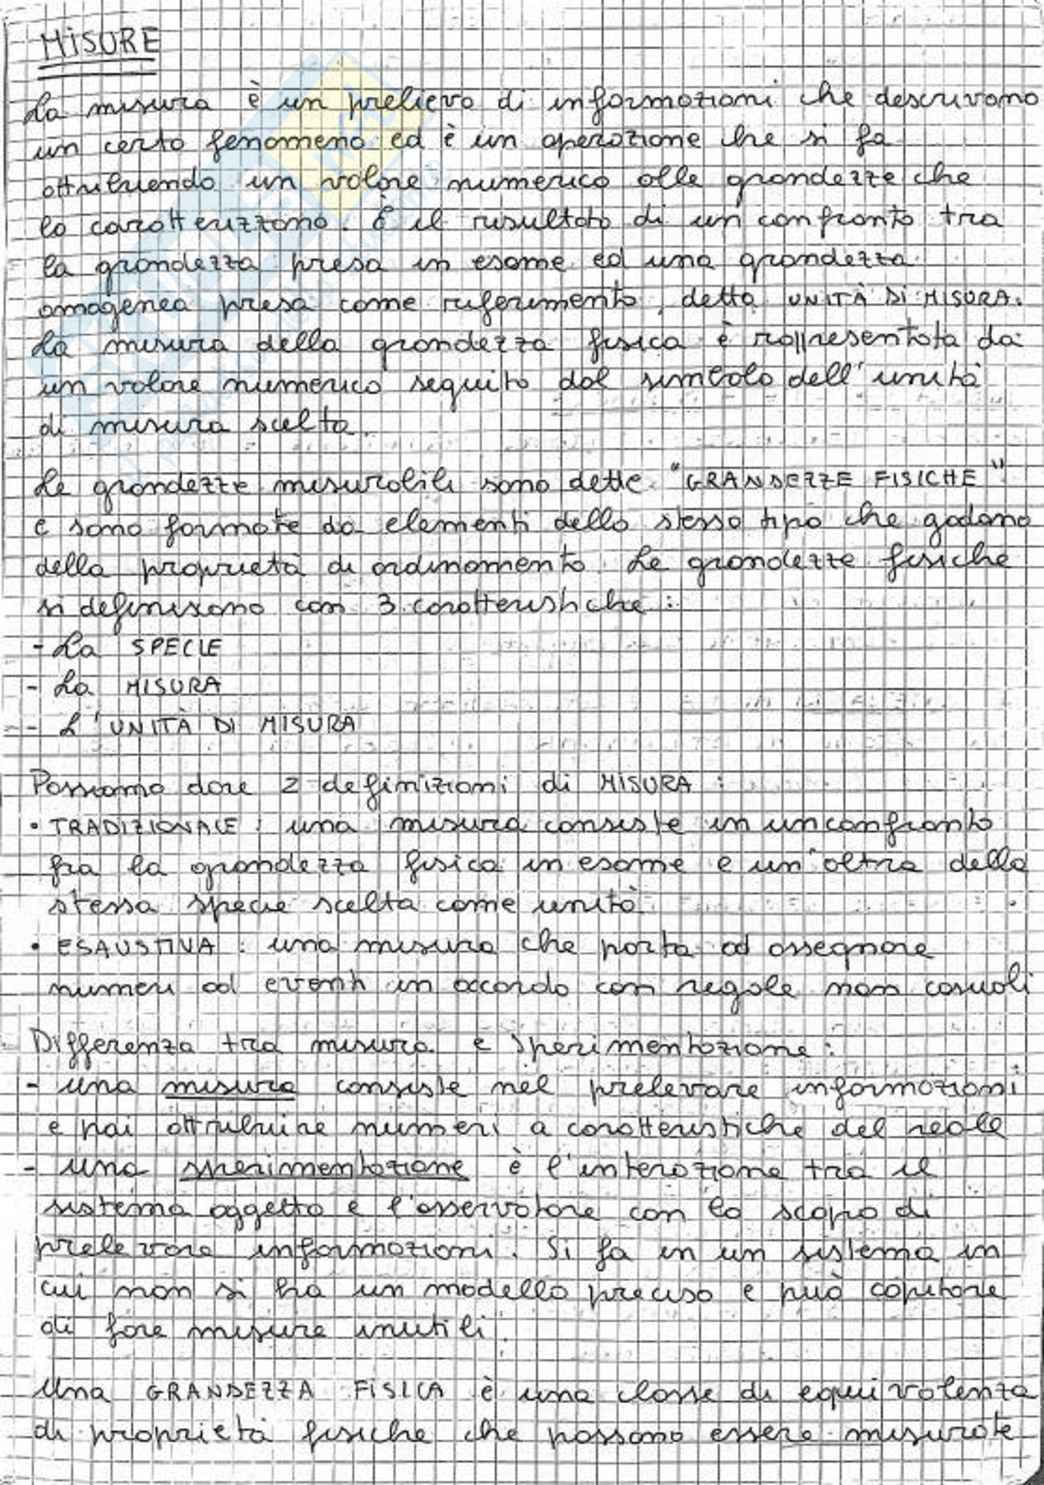 MISURE
La misura è un prelievo di informazioni che descrivono
un certo fenomeno ed è un operazione che si fa
attribuendo un valore numerico alle grandezze che
lo caratterizzano. È il risultato di un confronto tra
la grandezza presa in esame ed una grandezza
omogenea presa come riferimento, detta UNITÀ DI MISURA.
La misura della grandezza fisica è rappresentata da
un valore numerico seguito dal simbolo dell'unità
di misura scelta.
Le grandezze misurabili sono dette "GRANDEZZE FISICHE"
e sono formate da elementi dello stesso tipo che godono
della proprietà di ordinamento. Le grandezze fisiche
si definiscono con 3 caratteristiche:
- La SPECIE
- La MISURA
- L'UNITÀ DI MISURA
Possiamo dare 2 definizioni di MISURA:
• TRADIZIONALE: una misura consiste in un confronto
fra la grandezza fisica in esame e un'altra della
stessa specie scelta come unità
• ESAUSTIVA: una misura che porta ad assegnare
numeri ad eventi in accordo con regole non casuali
Differenza tra misura e sperimentazione:
- una misura consiste nel prelevare informazioni
e poi attribuire numeri a caratteristiche del reale
- una sperimentazione è l'interazione tra il
sistema oggetto e l'osservatore con lo scopo di
prelevare informazioni. Si fa in un sistema in
cui non si ha un modello preciso e può capitare
di fare misure inutili.
Una GRANDEZZA FISICA è una classe di equivalenza
di proprietà fisiche che possono essere misurate